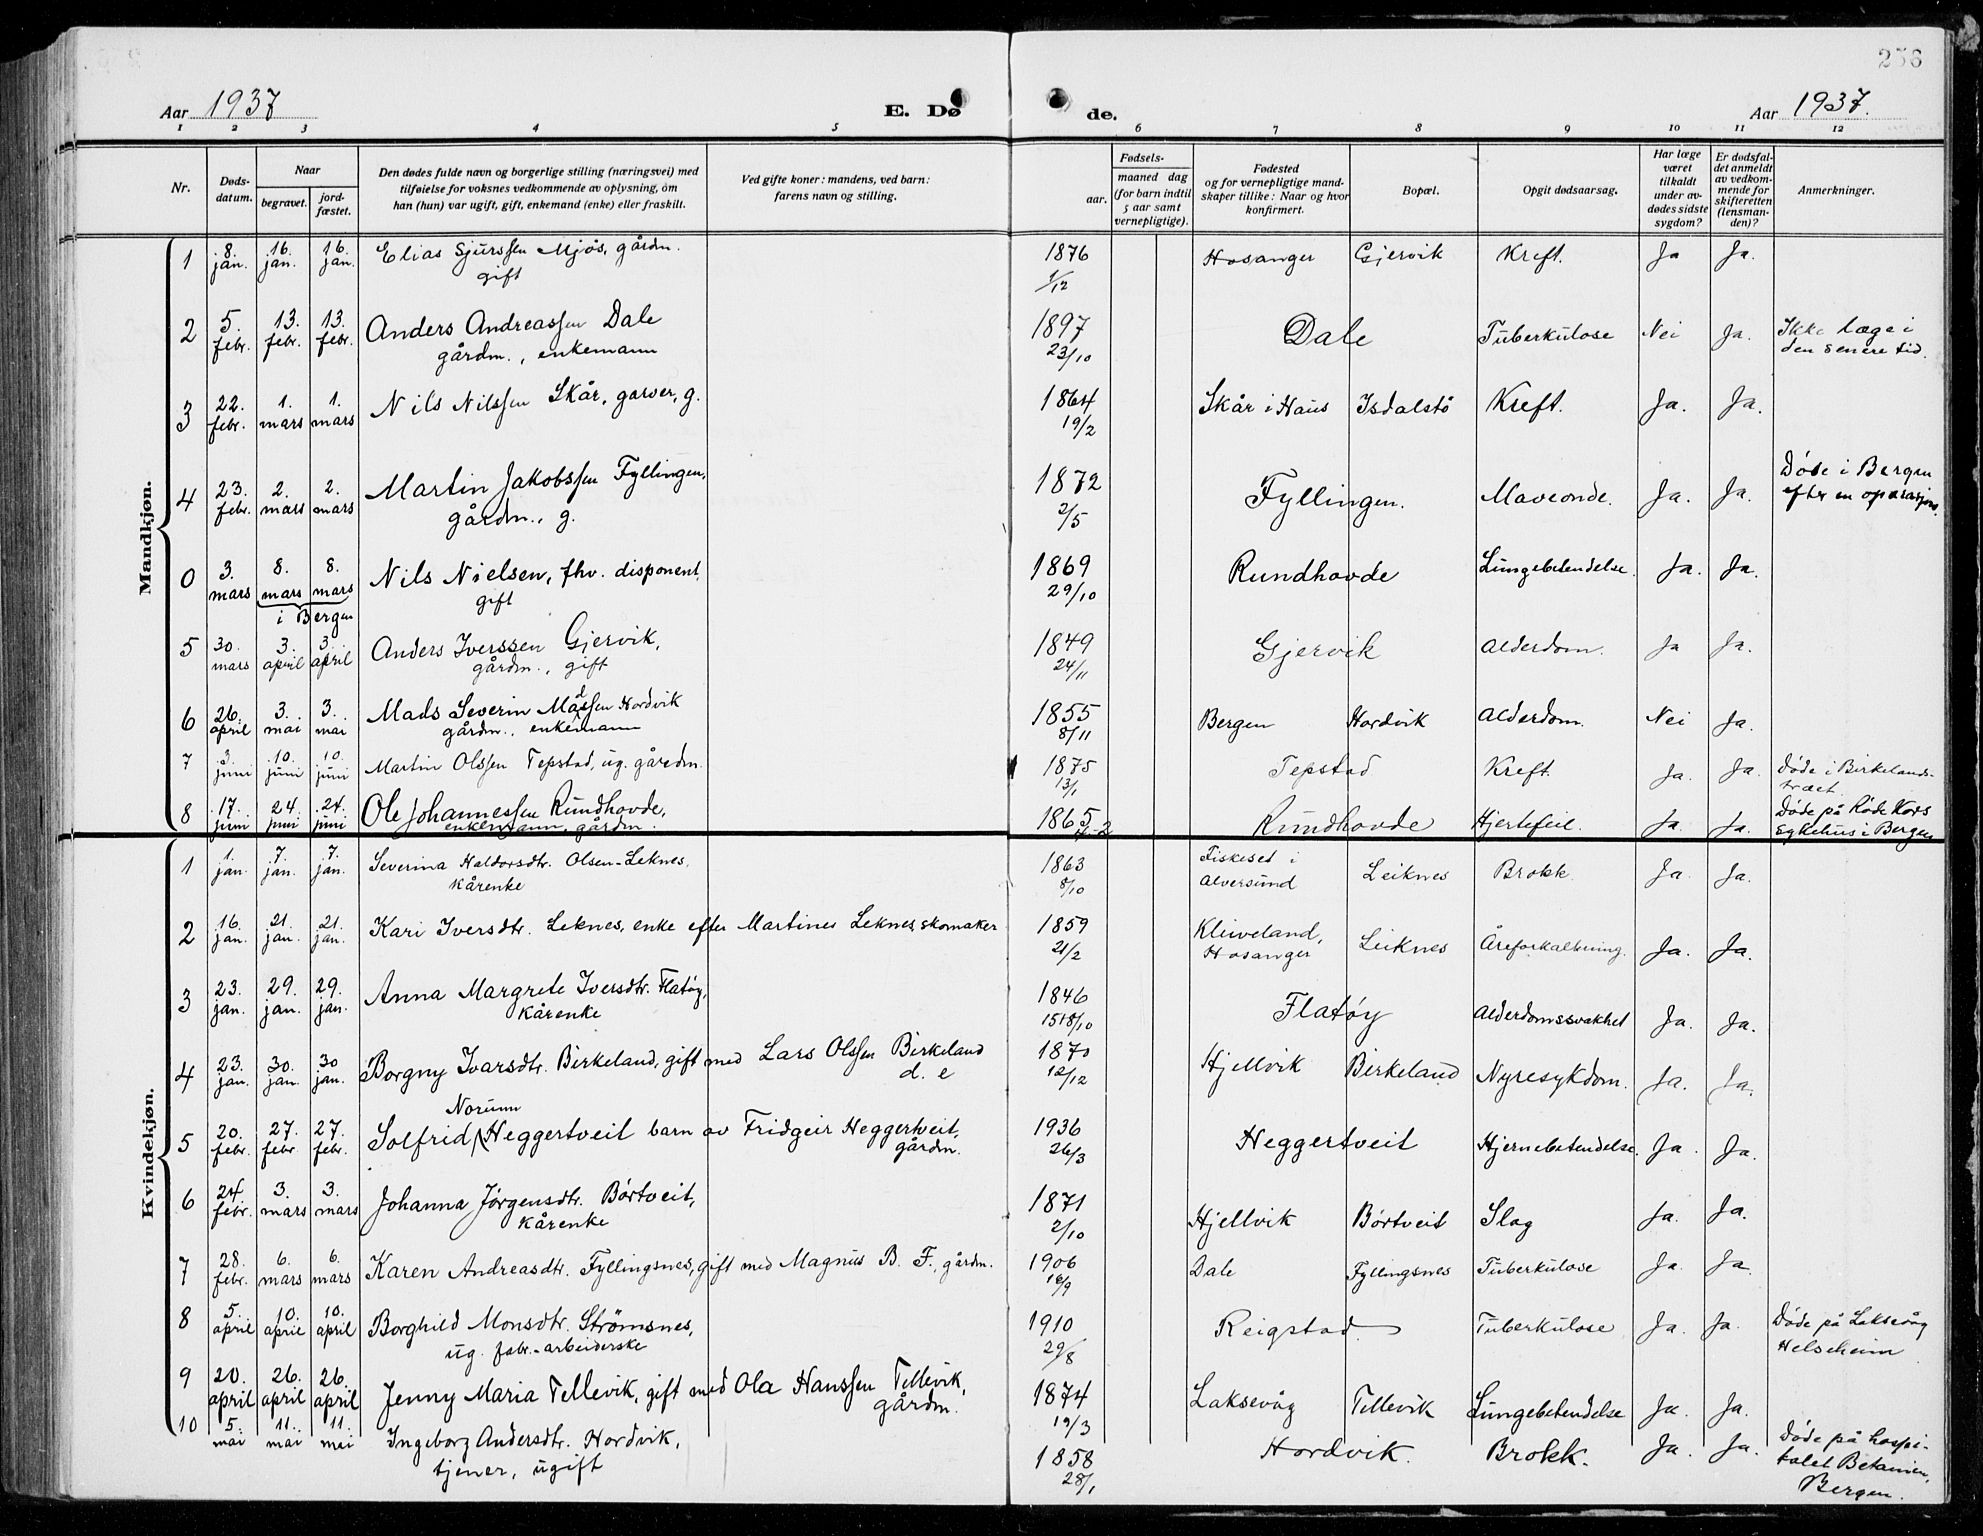 256
Aar 1937 E. Dø de. Aar 1937.
1 2 3 4 5 6 7 8 9 10 11 12
Nr. Døds-datum. Naar begravet. jord-fæstet. Den dødes fulde navn og borgerlige stilling (næringsvei) med tilføielse for voksnes vedkommende av oplysning, om han (hun) var ugift, gift, enkemand (enke) eller fraskilt. Ved gifte koner: mandens, ved barn: farens navn og stilling. Fødsels- aar. maaned dag (for barn indtil 5 aar samt vernepligtige). Fødested og for vernepligtige mandskaper tillike: Naar og hvor konfirmert. Bopæl. Opgit dødsaarsag. Har læge været tilkaldt under avdødes sidste sygdom? Er dødsfaldet anmeldt av vedkommende for skifteretten (lensmanden)? Anmerkninger.
Mandkjøn.
1 8. jan. 16. jan. 16. jan. Elias Sjurssen Mjøs, gårdm. gift 1876 1/12 Hosanger Gjervik Kreft. Ja Ja.
2 5. febr. 13. febr. 13. febr. Anders Andreassen Dale gårdm., enkemann 1897 23/10 Dale Tuberkulose Nei Ja. Ikke læge i den senere tid.
3 22. febr. 1. mars 1. mars Nils Nilssen Skår, garver, g. 1864 19/2 Skår i Haus Isdalstø Kreft. Ja. Ja.
4 23. febr. 2. mars 2. mars Martin Jakobssen Fyllingen, gårdm., g. 1872 2/5 Fyllingen. Maveonde. Ja. Ja. Døde i Bergen efter en operasjon.
0 3. mars 8. mars 8. mars i Bergen Nils Nielsen, fhv. disponent, gift 1869 29/10 Rundhovde Lungebetendelse. Ja. Ja.
5 30. mars 3. april 3. april Anders Iverssen Gjervik, gårdm., gift 1849 24/11 Gjervik Alderdom. Ja Ja.
6 26. april 3. mai 3. mai Mads Severin Madssen Hordvik gårdm., enkemann 1855 8/11 Bergen Hordvik Alderdom. Nei Ja.
7 3. juni 10. juni 10. juni Martin Olssen Tepstad, ug. gårdm. 1875 13/1 Tepstad Kreft. Ja. Ja. Døde i Birkelandstræet.
8 17. juni 24. juni 24. juni Ole Johannessen Rundhovde, enkemann, gårdm. 1865 Rundhovde Hjertefeil. Ja. Ja. Døde på Røde Kors sykehus i Bergen
Kvindekjøn.
1 1. jan. 7. jan. 7. jan. Severina Haldorsdtr. Olsen-Leknes, kårenke 1863 8/10 Fiskeset i Alversund Leiknes Brokk. Ja. Ja.
2 16. jan. 21. jan. 21. jan. Kari Iversdtr. Leknes, enke efter Martines Leknes, skomaker 1859 21/2 Kleiveland, Hosanger Leiknes Åreforkalkning. Ja. Ja.
3 23. jan. 29. jan. 29. jan. Anna Margrete Iversdtr. Flatøy, kårenke 1846 1518/10 Flatøy Alderdomssvakhet Ja. Ja.
4 23. jan. 30. jan. 30 jan. Borgny Ivarsdtr. Birkeland, gift med Lars Olssen Birkeland d. e 1870 12/12 Hjellvik Birkeland Nyresykdom. Ja. Ja.
5 20. febr. 27. febr. 27. febr. Solfrid Norunn Heggertveit barn av Fridgeir Heggertveit, gårdm. 1936 26/3 Heggertveit Hjernebetendelse. Ja. Ja.
6 24. febr. 3. mars 3. mars Johanna Jørgensdtr. Børtveit, kårenke 1871 2/10 Hjellvik Børtveit Slag Ja. Ja.
7 28. febr. 6. mars 6. mars Karen Andreasdtr. Fyllingsnes, gift med Magnus B. F., gårdm. 1906 16/9 Dale Fyllingsnes Tuberkulose Ja. Ja
8 5. april 10. april 10. april Borghild Monsdtr. Strømsnes, ug. fabr.-arbeiderske 1910 29/8 Reigstad Tuberkulose Ja. Ja. Døde på Laksevåg Helseheim
9 20. april 26. april 26. april Jenny Maria Tellevik, gift med Ola Hanssen Tellevik, gårdm. 1874 19/3 Laksevåg Tellevik Lungebetendelse Ja. Ja.
10 5. mai 11. mai 11. mai Ingeborg Andersdtr. Hordvik, tjener, ugift 1858 28/1 Hordvik. Brokk. Ja. Ja. Døde på hospitalet Betanien, Bergen.